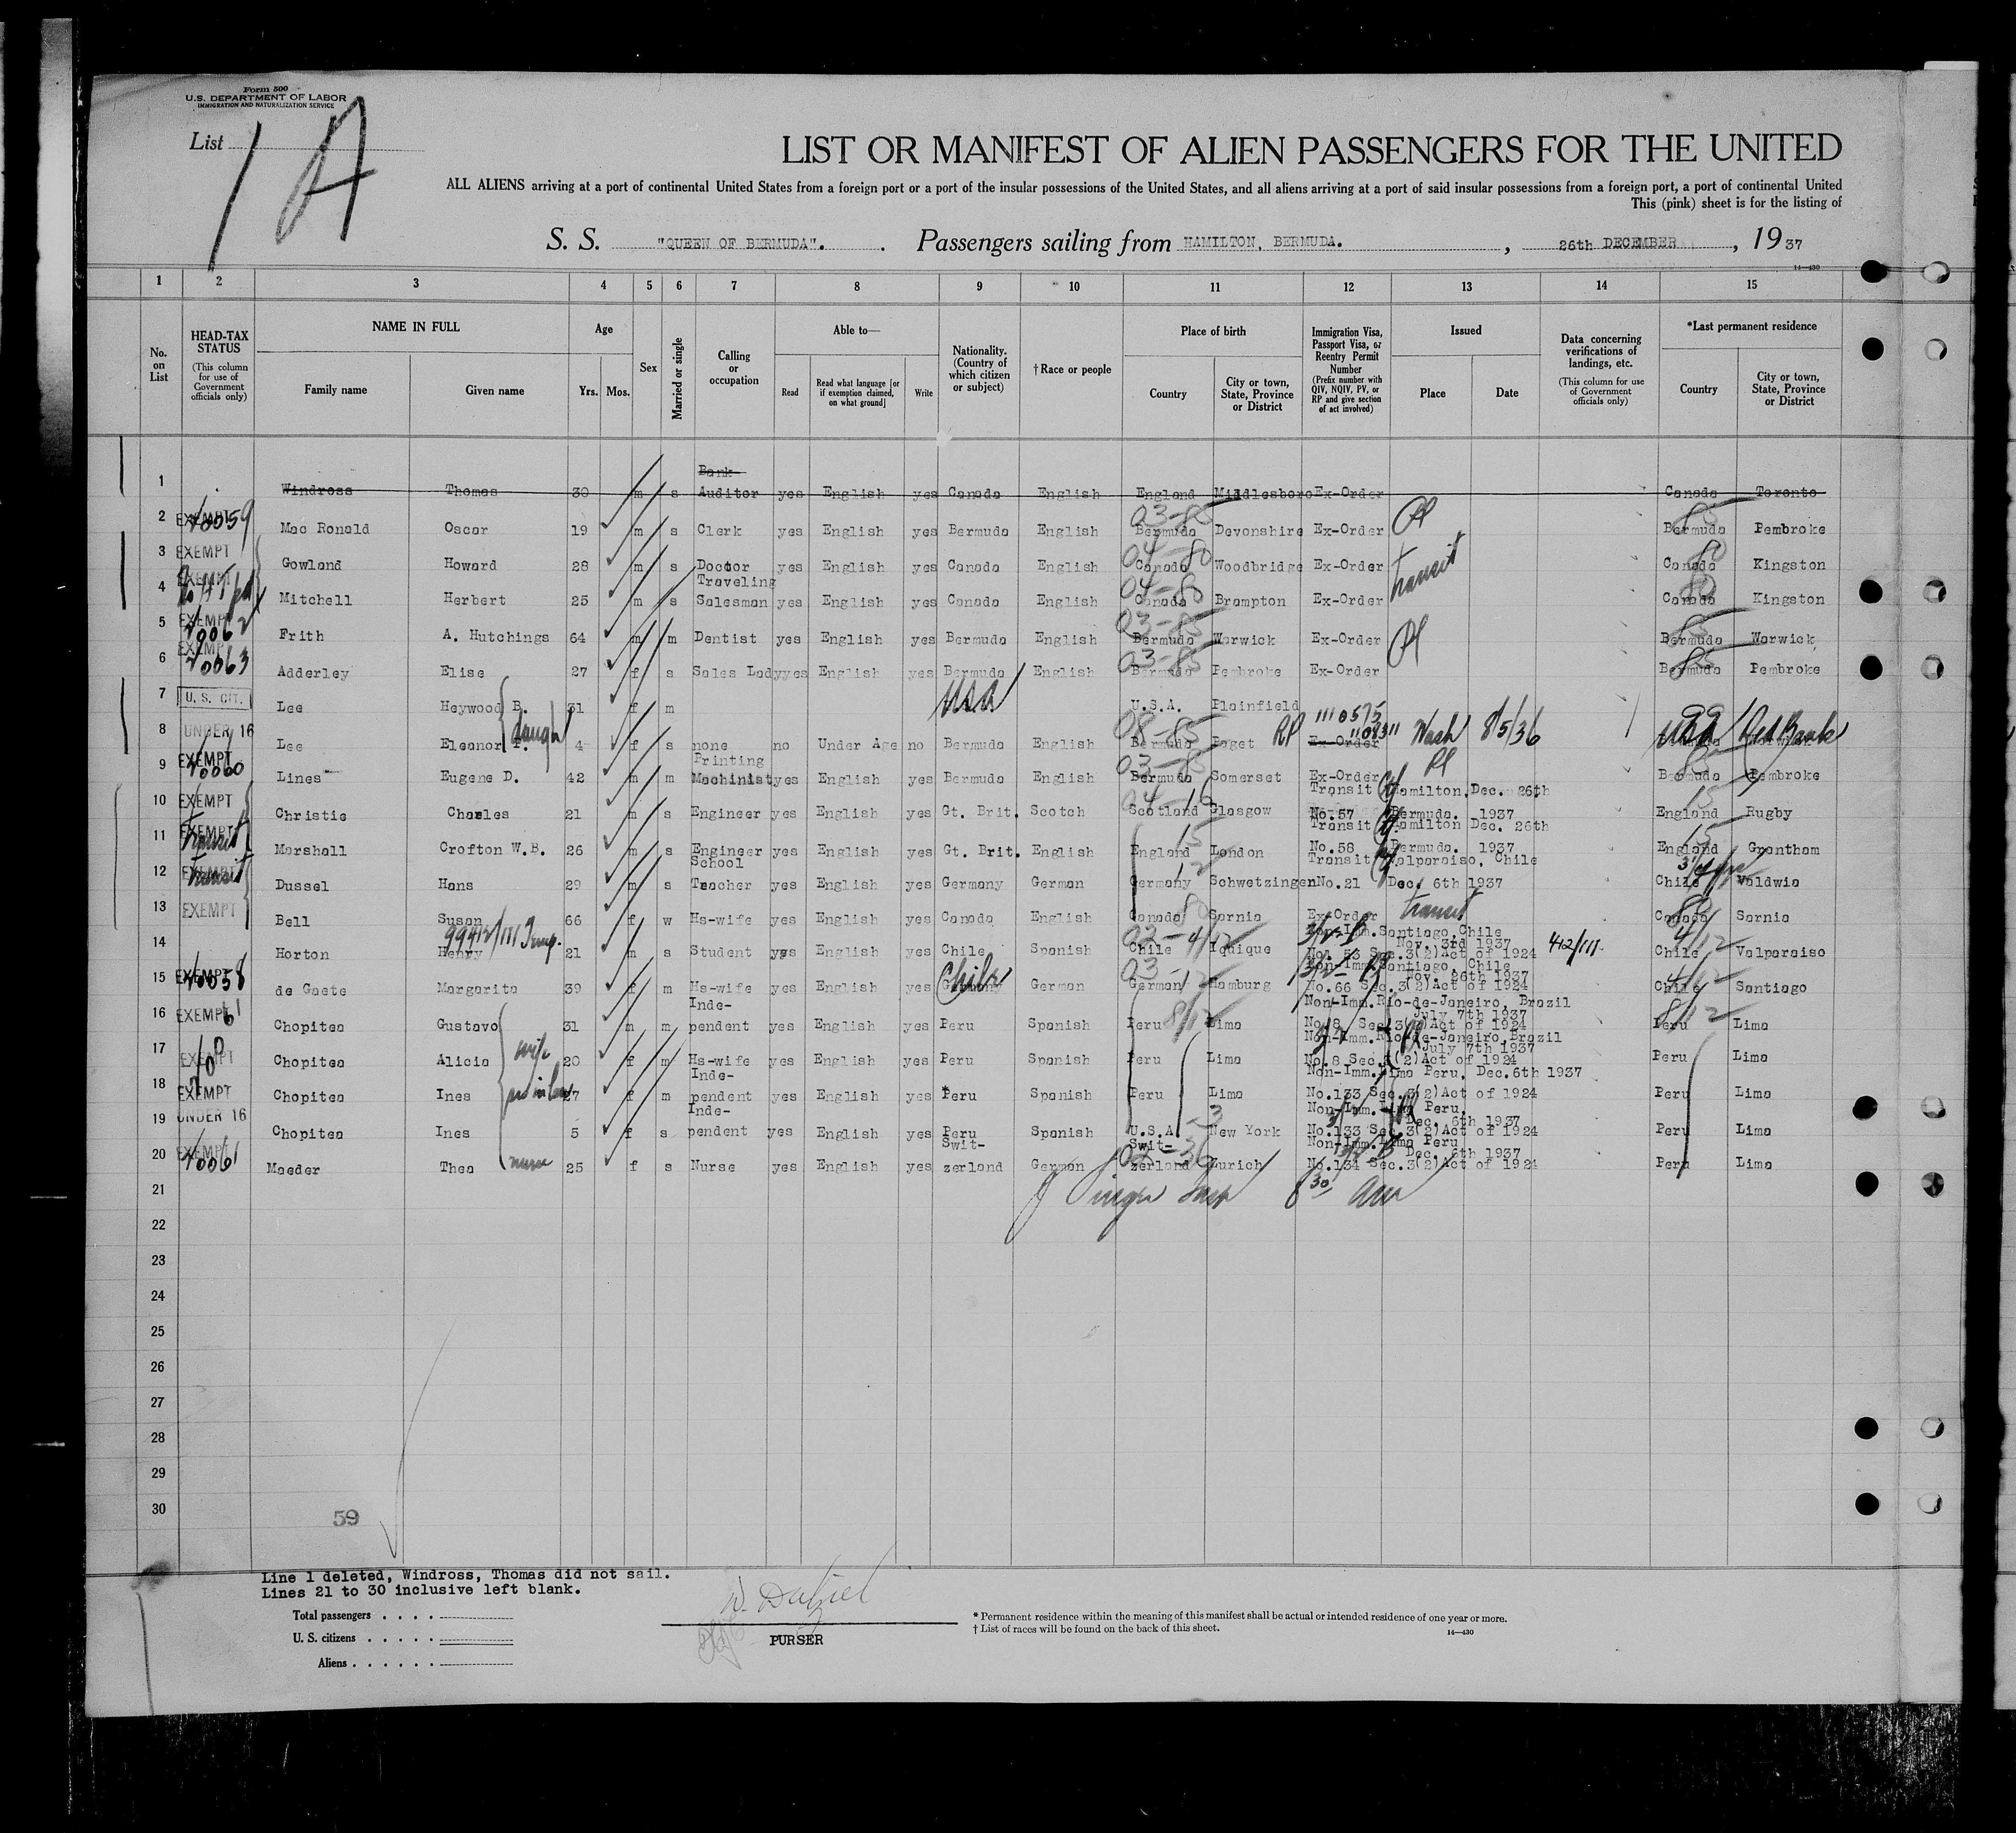 Form 500
U.S. DEPARTMENT OF LABOR
IMMIGRATION AND NATURALIZATION SERVICE
List 1 A
LIST OR MANIFEST OF ALIEN PASSENGERS FOR THE UNITED
ALL ALIENS arriving at a port of continental United States from a foreign port or a port of the insular possessions of the United States, and all aliens arriving at a port of said insular possessions from a foreign port, a port of continental United
This (pink) sheet is for the listing of
S. S. "QUEEN OF BERMUDA". Passengers sailing from HAMILTON, BERMUDA. , 26th DECEMBER , 19 37
14—430
1 2 3 4 5 6 7 8 9 10 11 12 13 14 15
No. on List
HEAD-TAX STATUS (This column for use of Government officials only)
NAME IN FULL
Family name Given name
Age Yrs. Mos.
Sex
Married or single
Calling or occupation
Able to— Read Read what language [or if exemption claimed, on what ground] Write
Nationality. (Country of which citizen or subject)
† Race or people
Place of birth Country City or town, State, Province or District
Immigration Visa, Passport Visa, or Reentry Permit Number (Prefix number with QIV, NQIV, PV, or RP and give section of act involved)
Issued Place Date
Data concerning verifications of landings, etc. (This column for use of Government officials only)
*Last permanent residence Country City or town, State, Province or District
1 Windross Thomas 30 m s Bank Auditor yes English yes Canada English England Middlesboro Ex-Order Canada Toronto
2 EXEMPT Mac Ronald Oscar 19 m s Clerk yes English yes Bermuda English 03-85 Bermuda Devonshire Ex-Order 85 Bermuda Pembroke
3 EXEMPT Gowland Howard 28 m s Doctor yes English yes Canada English 04-80 Canada Woodbridge Ex-Order transit 80 Canada Kingston
4 EXEMPT Mitchell Herbert 25 m s Traveling Salesman yes English yes Canada English 04-80 Canada Brampton Ex-Order 80 Canada Kingston
5 EXEMPT Frith A. Hutchings 64 m m Dentist yes English yes Bermuda English 03-85 Bermuda Warwick Ex-Order 85 Bermuda Warwick
6 EXEMPT Adderley Elise 27 f s Sales Lady yes English yes Bermuda English 03-85 Bermuda Pembroke Ex-Order 85 Bermuda Pembroke
7 U. S. CIT. Lee Heywood B. 31 f m USA U.S.A. Plainfield 99
8 UNDER 16 Lee Eleanor F. daugh 4 f s none no Under Age no Bermuda English 08-85 Bermuda Paget RP 1110575 Ex-Order Wash 8/5/36 USA Red Bank
9 EXEMPT Lines Eugene D. 42 m m Printing Machinist yes English yes Bermuda English 03-85 Bermuda Somerset Ex-Order Bermuda Pembroke
10 EXEMPT Christie Charles 21 m s Engineer yes English yes Gt. Brit. Scotch Scotland Glasgow Transit No.57 Hamilton, Bermuda. Dec. 26th 1937 15 England Rugby
11 EXEMPT transit Marshall Crofton W.B. 26 m s Engineer yes English yes Gt. Brit. English 15 England London Transit No.58 Hamilton Bermuda. Dec. 26th 1937 15 England Grantham
12 EXEMPT transit Dussel Hans 29 m s School Teacher yes English yes Germany German Germany Schwetzingen Transit No.21 Valparaiso, Chile Dec. 6th 1937 Chile Valdwia
13 EXEMPT Bell Susan 66 f w Hs-wife yes English yes Canada English 80 Canada Sarnia Ex-Order transit 80 Canada Sarnia
14 Horton Henry 21 m s Student yes English yes Chile Spanish Chile Iquique Non-Imm. Santiago, Chile Nov. 3rd 1937 No. 53 Sec. 3(2) Act of 1924 Chile Valparaiso
15 EXEMPT de Gaete Margarita 39 f m Hs-wife yes English yes Germany Chile German Germany Hamburg Non-Imm. Santiago, Chile Nov. 26th 1937 No.66 Sec. 3(2) Act of 1924 Chile Santiago
16 EXEMPT Chopitea Gustavo 31 m m Inde-pendent yes English yes Peru Spanish Peru Lima Non-Imm. Rio-de-Janeiro, Brazil July 7th 1937 No.8 Sec. 3(2) Act of 1924 Peru Lima
17 EXEMPT Chopitea Alicia wife 20 f m Hs-wife yes English yes Peru Spanish Peru Lima Non-Imm. Rio-de-Janeiro, Brazil July 7th 1937 No.8 Sec. 3(2) Act of 1924 Peru Lima
18 EXEMPT Chopitea Ines 27 f m Inde-pendent yes English yes Peru Spanish Peru Lima Non-Imm. Lima Peru, Dec. 6th 1937 No.133 Sec. 3(2) Act of 1924 Peru Lima
19 UNDER 16 Chopitea Ines 5 f s Inde-pendent yes English yes Peru Spanish U.S.A. New York Non-Imm. Lima Peru, Dec. 6th 1937 No.133 Sec. 3(2) Act of 1924 Peru Lima
20 EXEMPT Maeder Thea nurse 25 f s Nurse yes English yes Swit-zerland German Swit-zerland Zurich Non-Imm. Lima Peru Dec. 6th 1937 No.134 Sec. 3(2) Act of 1924 Peru Lima
21
22
23
24
25
26
27
28
29
30
59
Line 1 deleted, Windross, Thomas did not sail.
Lines 21 to 30 inclusive left blank.
Total passengers . . . .
U. S. citizens . . . . .
Aliens . . . . . .
PURSER
* Permanent residence within the meaning of this manifest shall be actual or intended residence of one year or more.
† List of races will be found on the back of this sheet.
14—430